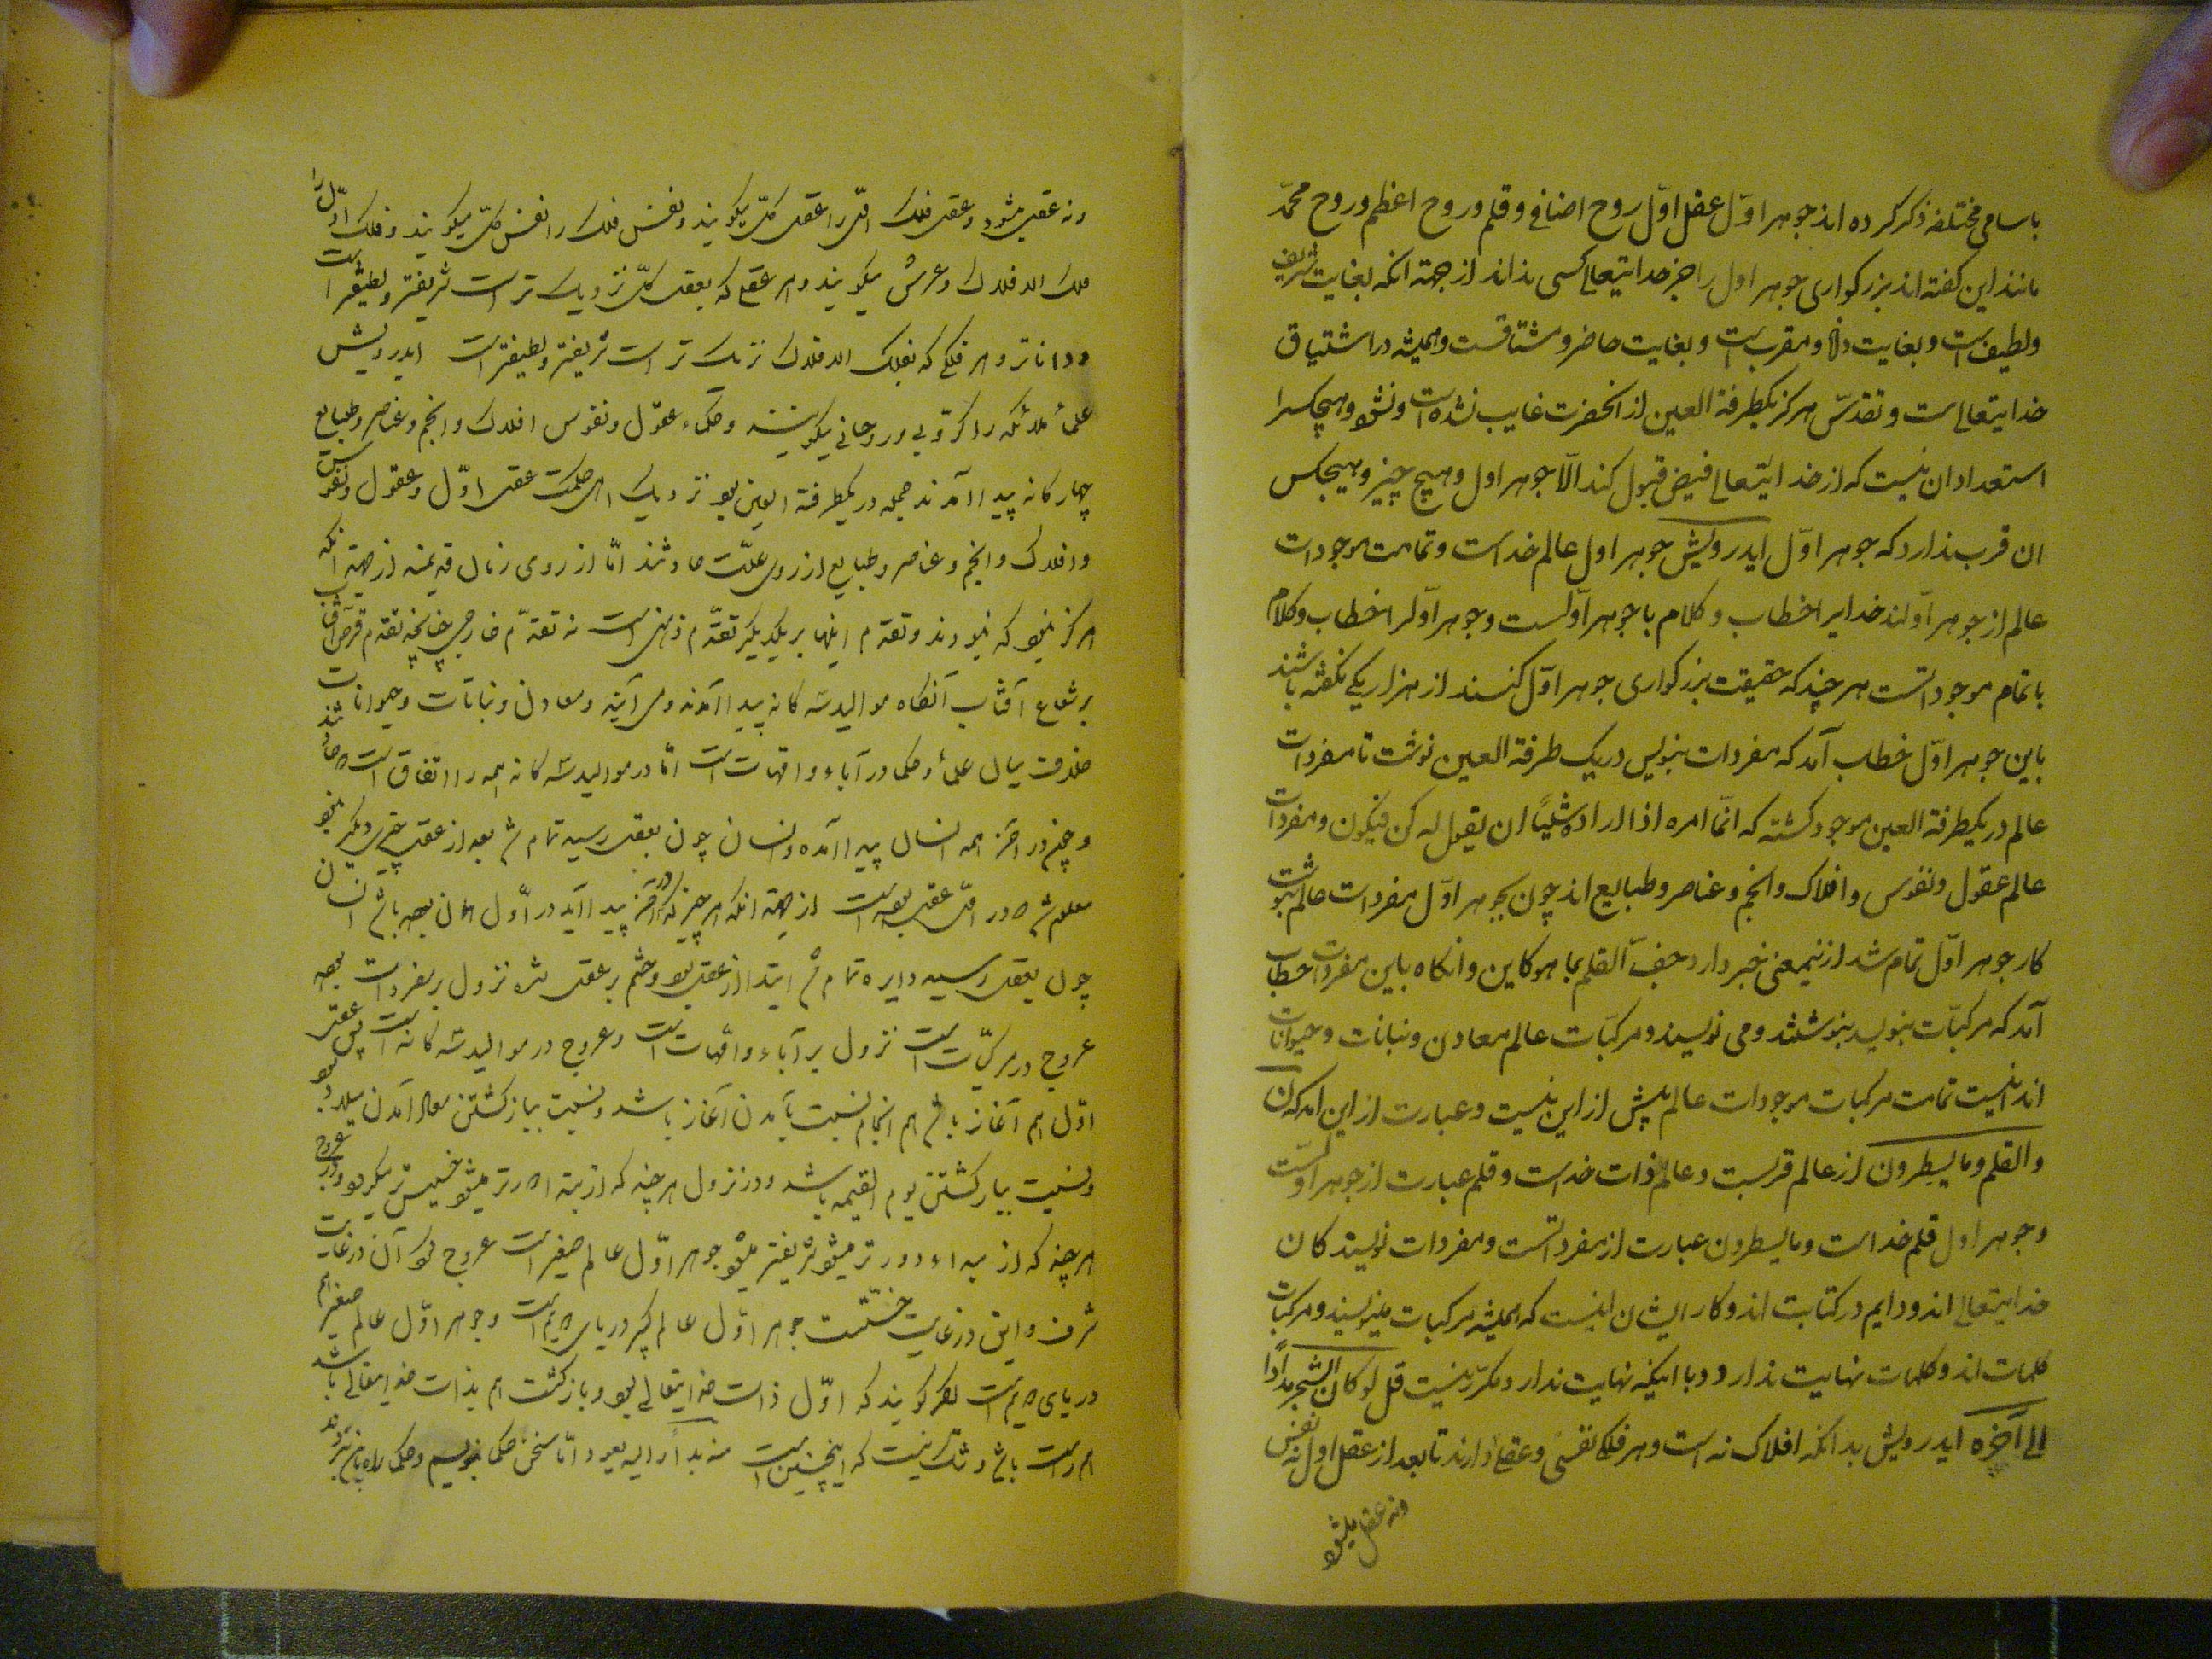 باسامی مختلفه ذکر کرده اند جوهر اوّل عقل اوّل روح اضافی و قلم و روح اعظم و روح محمّد
مانند این گفته اند بزرگواری جوهر اول را جز خدایتعالی کسی نداند از جهة انکه بغایت شریف
ولطیف است و بغایت دانا و مقرب است و بغایت حاضر و مشتاقست و همیشه در اشتیاق
خدایتعالی است و تقدّس هرکز یکطرفة العین از انحضرت غایب نشده است و نشود و هیچکسرا
استعداد ان نیست که از خدایتعالی فیض قبول کند الّا جوهر اول و هیچ چیز و هیچکس
ان قرب ندارد که جوهر اوّل ایدرویش جوهر اول عالم خداست و تمامت موجودات
عالم از جوهر اوّلند خدایرا خطاب و کلام با جوهر اوّلست و جوهر اوّلرا خطاب و کلام
با تمام موجوداتست هر چند که حقیقت بزرکواری جوهر اوّل کنند از هزار یکی نکفته باشند
باین جوهر اوّل خطاب آمد که مفردات بنویس در یک طرفة العین نوشت تا مفردات
عالم در یکطرفة العین موجود کشتند که انّما امره اذا اراد شیئًا ان یقول له کن فیکون و مفردات
عالم عقول و نفوس و افلاک و انجم و عناصر و طبایع اند چون جوهر اوّل مفردات عالم بنوشت
کار جوهر اوّل تمام شد ازینمعنی خبر دارد جفّ القلم بما هو کاین و انکاه باین مفردات خطاب
آمد که مرکبّات بنویسید بنوشتند و می نویسند و مرکبّات عالم معادن و نباتات و حیوانات
اند اینست تمامت مرکبات موجودات عالم بیش از این نیست و عبارت از این امد که ن
والقلم وما یسطرون از عالم قربست و عالم ذات خداست و قلم عبارت از جوهر اوّلست
و جوهر اول قلم خداست و مایسطرون عبارت از مفرداتست و مفردات نویسندکان
خدایتعالی اند و دایم در کتابت اند و کار ایشان اینست که همیشه مرکبات مینویسند و مرکبات
کلمات اند و کلمات نهایت ندارد و با اینکه نهایت ندارد مکرّر نیست قل لو کان البحر مدادا
الی آخره ایدرویش بدانکه افلاک نه است و هر فلکی نفسی و عقلی دارند تا بعد از عقل اول نه نفس
ونه عقل میشود
ونه عقل میشود و عقل فلک اوّل را عقل کلّ میکویند و نفس فلک را نفس کلّ میکویند و فلک اوّل را
فلک الافلاک و عرش میکویند و هر عقلی که بعقل کلّ نزدیک تر است شریفتر و لطیفتر است
و داناتر و هر فلکی که بفلک الافلاک نزدیک تر است شریفتر و لطیفتر است ایدرویش
علماء ملائکه را کرّوبی و روحانی میکویند و حکماء عقول و نفوس افلاک و انجم و عناصر و طبایع
چهارکانه پیدا آمدند جمله در یکطرفة العین بود نزدیک اهل حکمت عقل اوّل و عقول و نفوس
و افلاک و انجم و عناصر و طبایع از روی علّت حادثند امّا از روی زمان قدیمند از جهة انکه
هرکز نبود که نبودند و تقدّم اینها بر یکدیکر تقدّم ذهنی است نه تقدّم خارجی چنانچه تقدّم قرص آفتاب
بر شعاع آفتاب آنکاه موالید سه کانه پیدا آمدند و می آیند و معادن و نباتات و حیوانات
خلاف میان علماء و حکما در آباء و امّهات است امّا در موالید سه کانه همه را اتفاق است که حادثند
و چون در اخر همه انسان پیدا آمده و انسان چون بعقل رسید تمام شد بعد از عقل چیزی دیکر نبود
معلوم شد که در اوّل عقل بوده است از جهة انکه هر چیز که در آخر پیدا آید در اوّل همان بوده باشد انسان
چون بعقل رسید دایره تمام شد ابتدا از عقل بود و ختم بر عقل شد نزول بر مفردات بوده
عروج در مرکبّات است نزول بر آباء و امّهات است و عروج در موالید سه کانه است پس عقل
اوّل هم آغاز باشد هم انجام نسبت بآمدن آغاز باشد و نسبت ببازکشتن معاد آمدن
و نسبت ببازکشتن یوم القیمه باشد و در نزول هر چند که از مبدا دورتر میشود خسیس تر میکردد و در عروج
هر چند که از مبداء دورتر میشود شریفتر میشود جوهر اوّل عالم صغیر است عروج کرد آن در غایت
شرف و این در غایت خسّت جوهر اوّل عالم کبیر دریای است و جوهر اوّل عالم صغیر هم
دریای است اکر کویند که اوّل ذات خدایتعالی بود و بازکشت هم بذات خدایتعالی باشد
هم راست باشد و شک نیست که اینچنین است منه بدأ و الیه یعود امّا سخن حکما بنویسیم و حکما راه